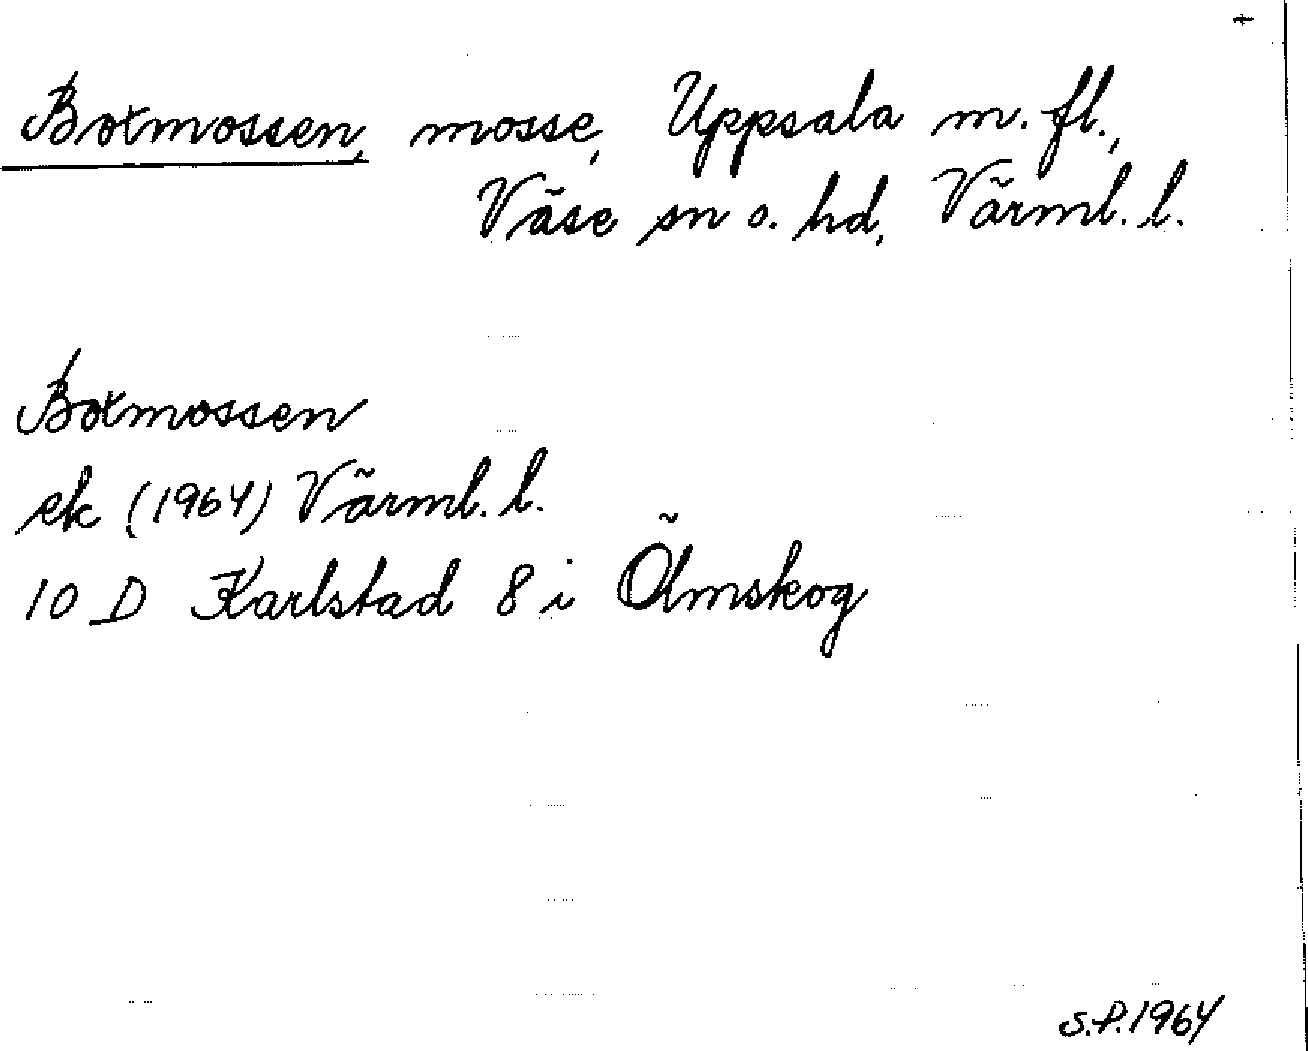 Botmossen, mosse, Uppsala m. fl.,
Väse sn o. hd, Värml. l.
Botmossen
ek (1964) Värml. l.
10 D Karlstad 8 i Ölmskog
S.P. 1964